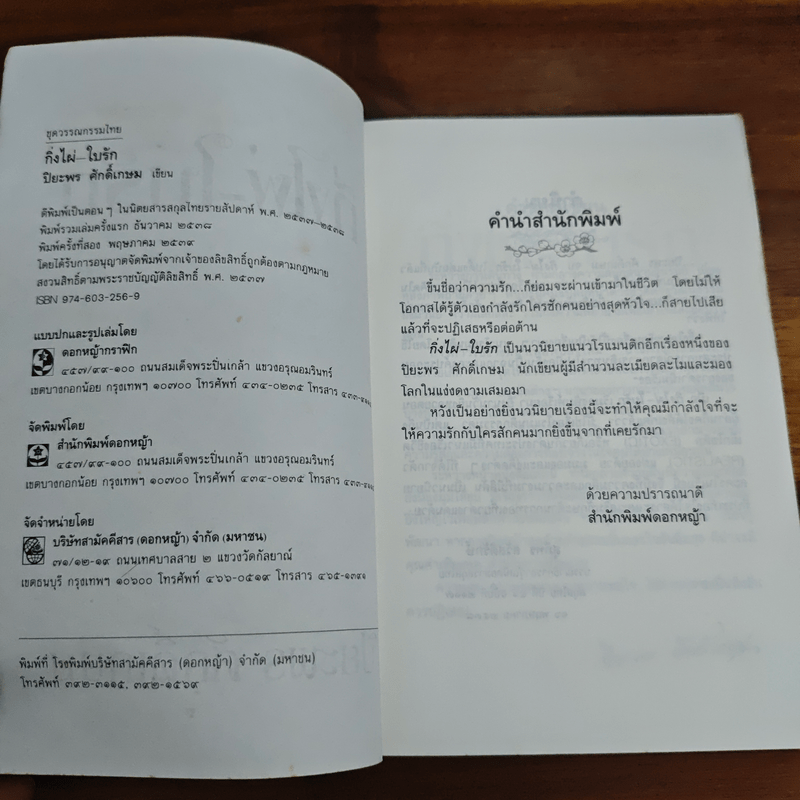 ชุดวรรณกรรมไทย
กิ่งไผ่—ใบรัก
ปิยะพร ศักดิ์เกษม เขียน
ตีพิมพ์เป็นตอนๆ ในนิตยสารสกุลไทยรายสัปดาห์ พ.ศ. ๒๕๓๗-๒๕๓๘
พิมพ์รวมเล่มครั้งแรก ธันวาคม ๒๕๓๘
พิมพ์ครั้งที่สอง พฤษภาคม ๒๕๓๙
โดยได้รับการอนุญาตจัดพิมพ์จากเจ้าของลิขสิทธิ์ถูกต้องตามกฎหมาย
สงวนสิทธิ์ตามพระราชบัญญัติลิขสิทธิ์ พ.ศ. ๒๕๓๗
ISBN 974-603-256-9
แบบปกและรูปเล่มโดย
ดอกหญ้ากราฟิก
๔๕๗/๙๙-๑๐๐ ถนนสมเด็จพระปิ่นเกล้า แขวงอรุณอมรินทร์
เขตบางกอกน้อย กรุงเทพฯ ๑๐๗๐๐ โทรศัพท์ ๔๓๔-๐๒๓๕ โทรสาร
จัดพิมพ์โดย
สำนักพิมพ์ดอกหญ้า
๔๕๗/๙๙-๑๐๐ ถนนสมเด็จพระปิ่นเกล้า แขวงอรุณอมรินทร์
เขตบางกอกน้อย กรุงเทพฯ ๑๐๗๐๐ โทรศัพท์ ๔๓๔-๐๒๓๕ โทรสาร
จัดจำหน่ายโดย
บริษัทสามัคคีสาร (ดอกหญ้า) จำกัด (มหาชน)
๗๑/๑๒-๑๙ ถนนเทศบาลสาย ๒ แขวงวัดกัลยาณ์
เขตธนบุรี กรุงเทพฯ ๑๐๖๐๐ โทรศัพท์ ๔๖๖-๐๕๑๙ โทรสาร ๔๖๕-๑๓๙๑
พิมพ์ที่ โรงพิมพ์บริษัทสามัคคีสาร (ดอกหญ้า) จำกัด (มหาชน)
โทรศัพท์ ๓๙๒-๓๑๑๕, ๓๙๒-๑๕๖๙
คำนำสำนักพิมพ์
ขึ้นชื่อว่าความรัก...ก็ย่อมจะผ่านเข้ามาในชีวิต โดยไม่ให้
โอกาสได้รู้ตัวเองกำลังรักใครซักคนอย่างสุดหัวใจ...ก็สายไปเสีย
แล้วที่จะปฏิเสธหรือต่อต้าน
กิ่งไผ่—ใบรัก เป็นนวนิยายแนวโรแมนติกอีกเรื่องหนึ่งของ
ปิยะพร ศักดิ์เกษม นักเขียนผู้มีสำนวนละเมียดละไมและมอง
โลกในแง่งดงามเสมอมา
หวังเป็นอย่างยิ่งนวนิยายเรื่องนี้จะทำให้คุณมีกำลังใจที่จะ
ให้ความรักกับใครสักคนมากยิ่งขึ้นจากที่เคยรักมา
ด้วยความปรารถนาดี
สำนักพิมพ์ดอกหญ้า